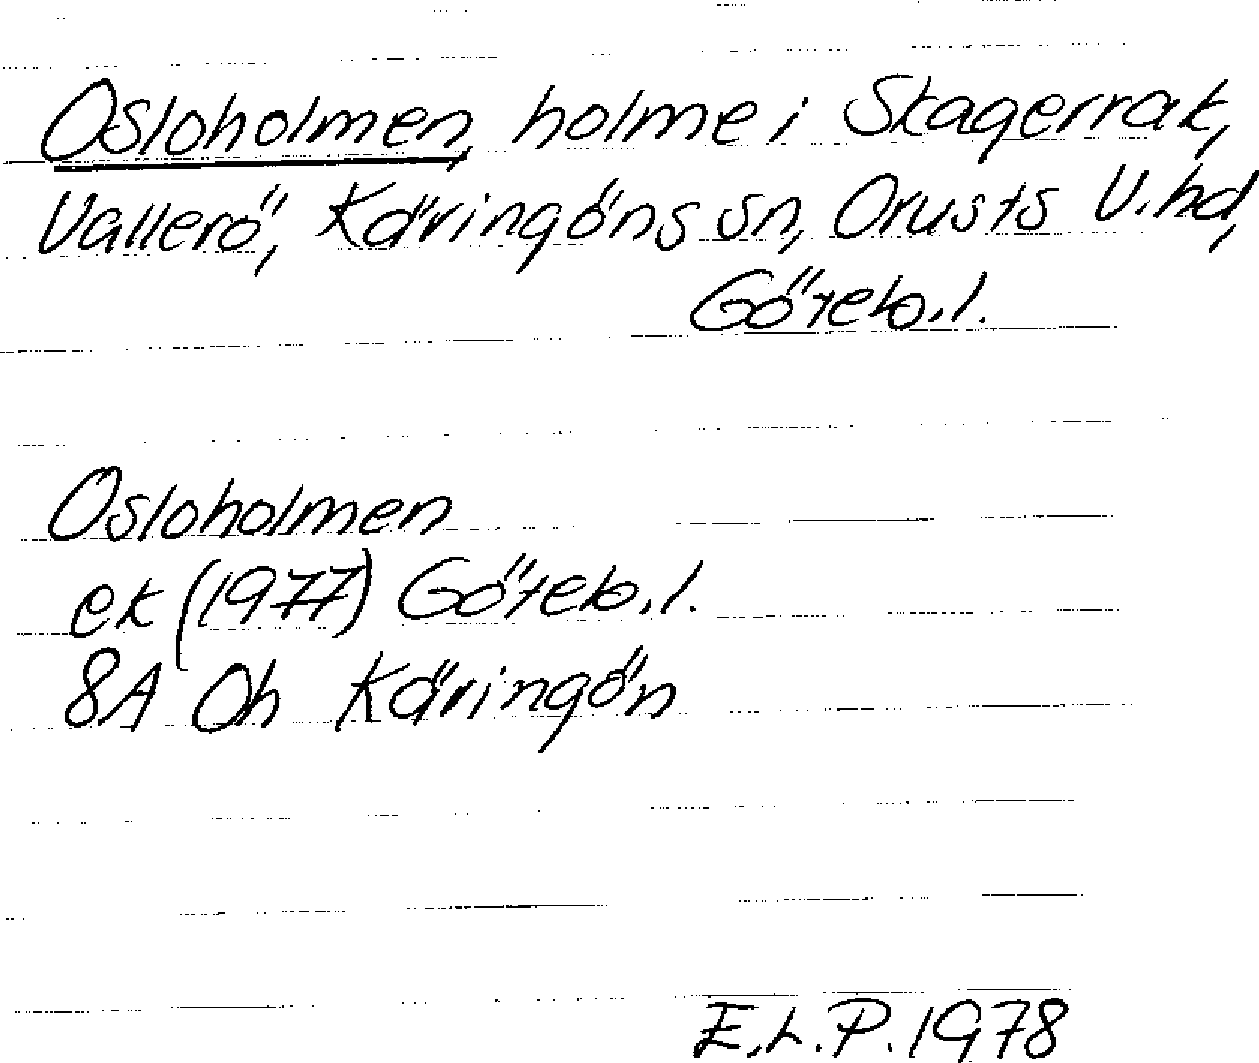 Osloholmen, holme i Skagerrak,
Vallerö, Käringöns sn, Orusts V. hd,
Göteb. l.
Osloholmen
ek (1977) Göteb. l.
8A Oh Käringön
E.L.P. 1978